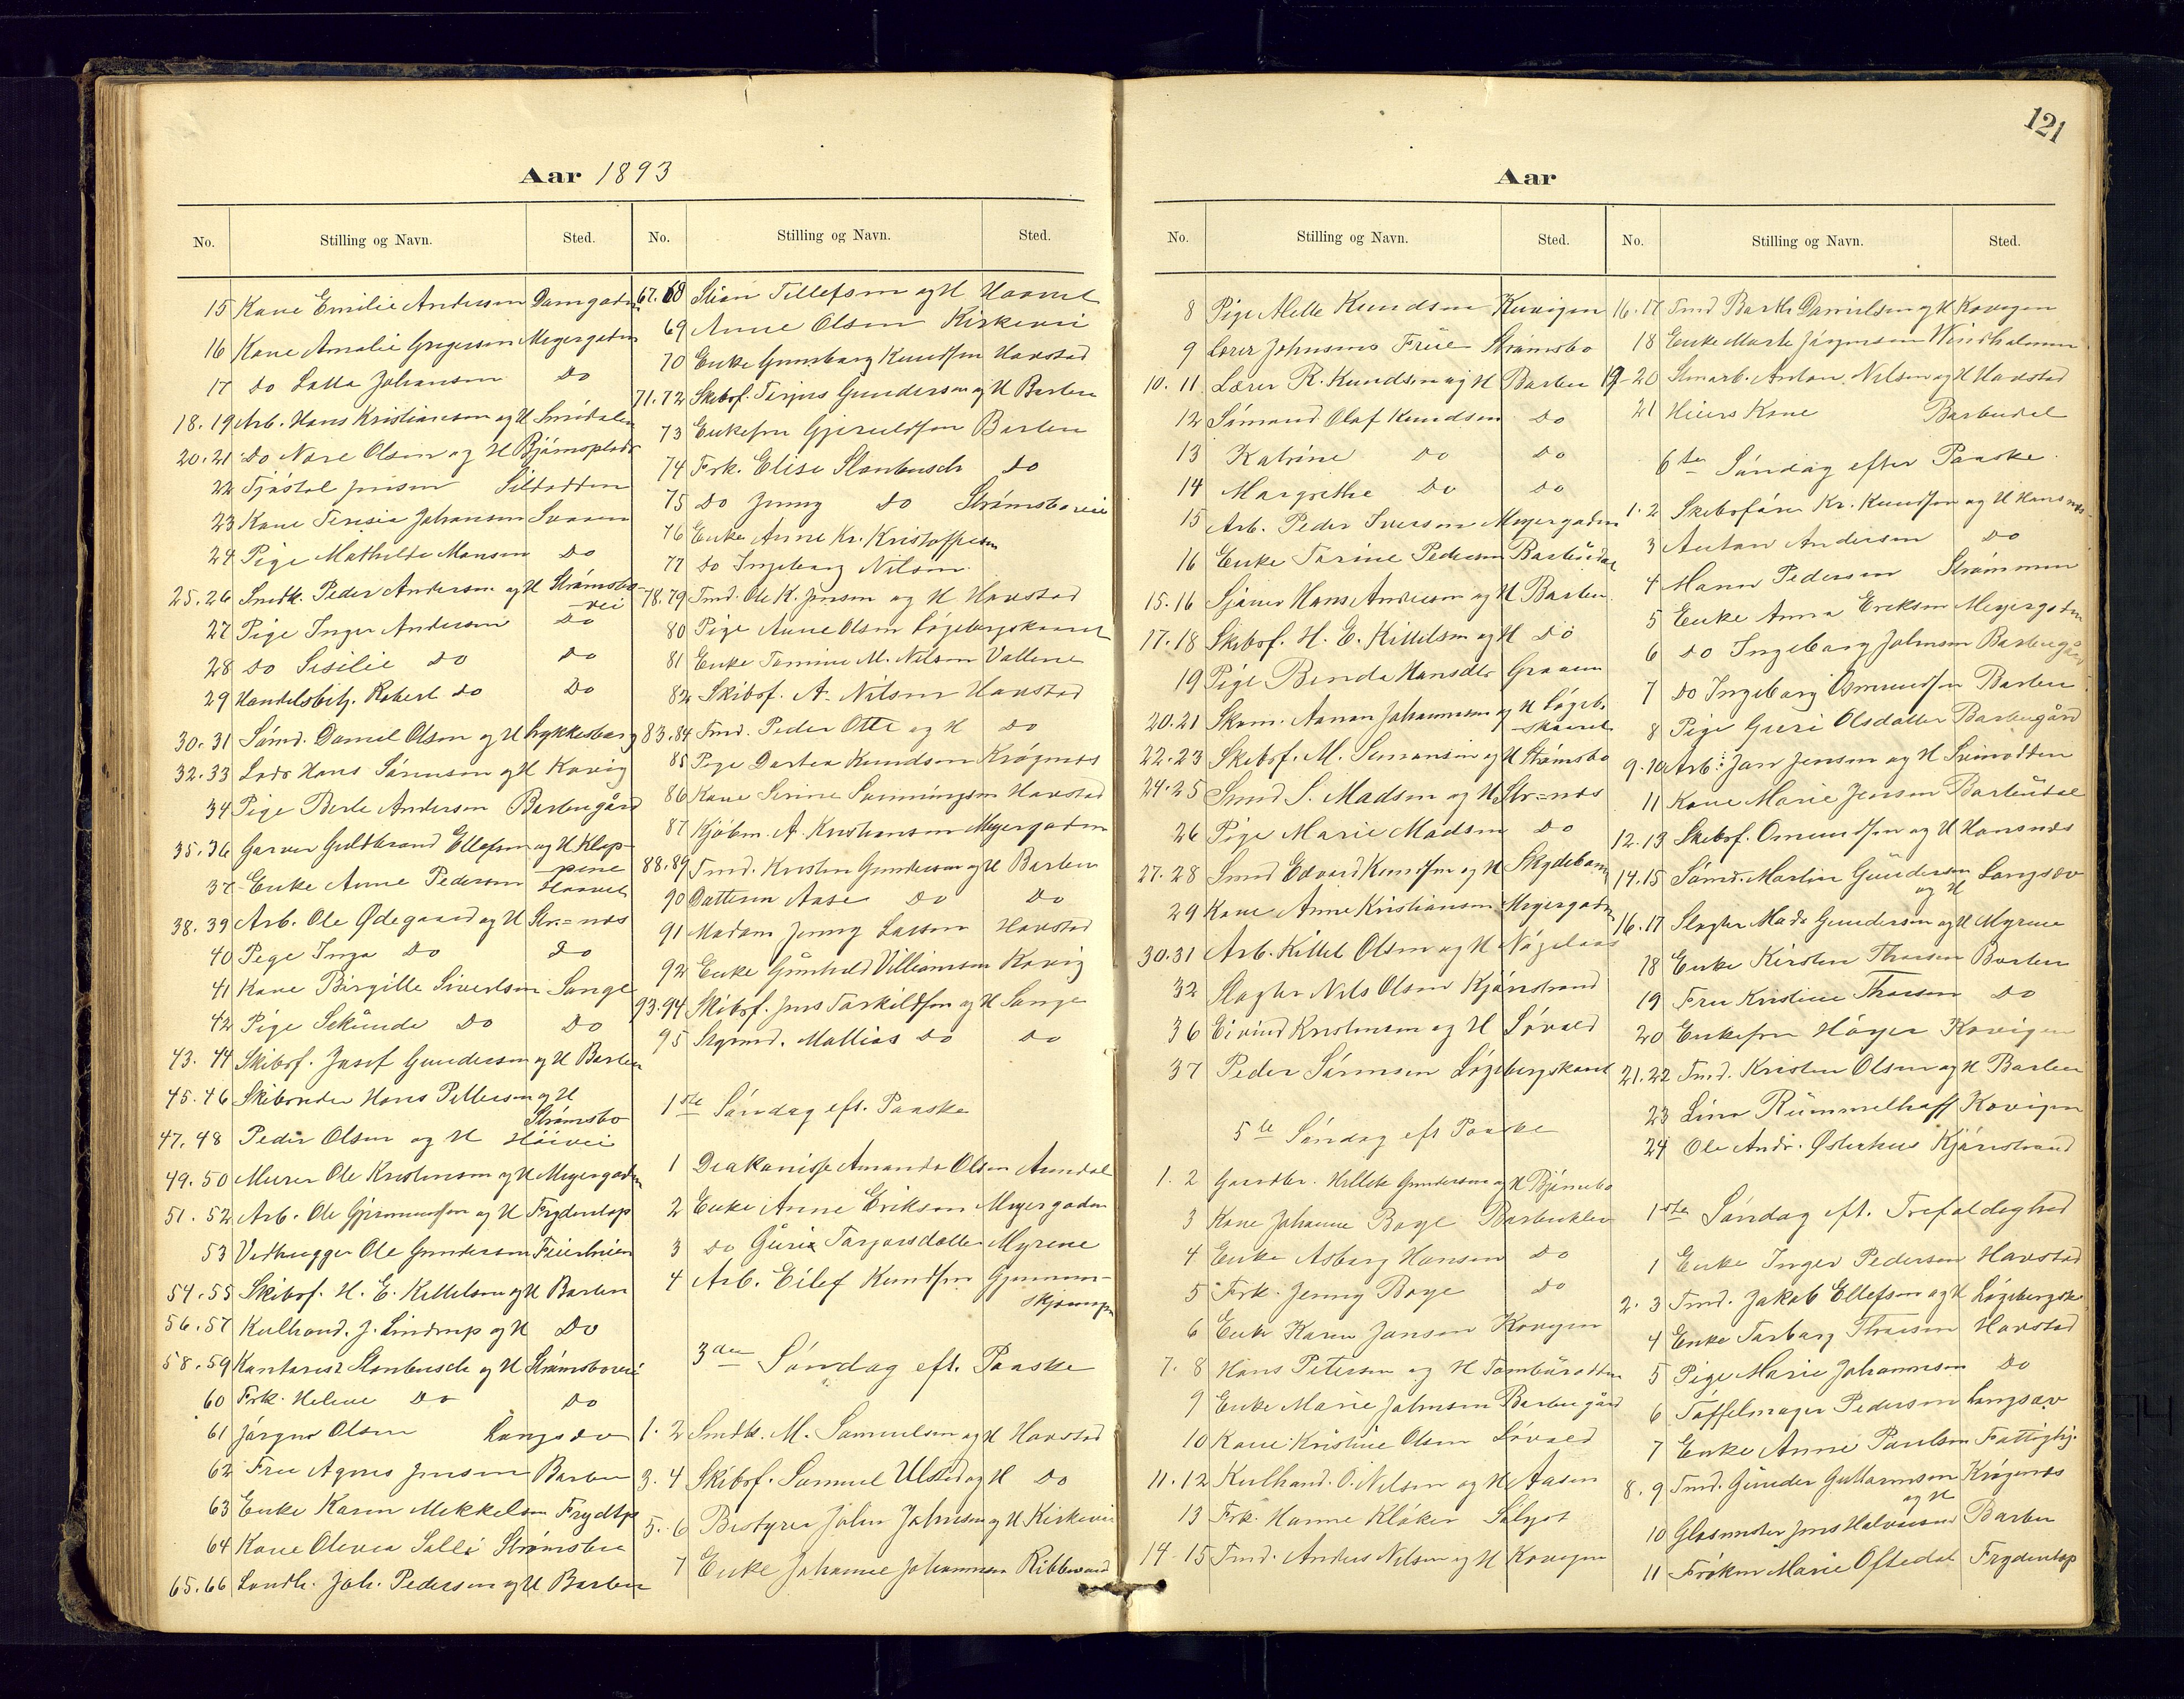 121
Aar 1893
No. Stilling og Navn. Sted.
15 Kone Emilie Andersen Damgaden
16 Kone Amalie Gregersen Meyergaden
17 Do Lalla Johansen Do
18.19 Arb. Hans Kristiansen og H
20.21 Do Nare Olsen og H Bjørnsplads
22 Tjøstol Jensen Sildodden
23 Kone Teresia Johansen Svaaen
24 Pige Mathilde Monsen Do
25.26 Snedk. Peder Andersen og H Strømsbo-
vei
27 Pige Inger Andersen Do
28 Do Sisilie Do Do
29 Handelsbetj. Robert Do Do
30.31 Sømd. Daniel Olsen og H Lykkesborg
32.33 Lods Hans Sørensen og H Kovig
34 Pige Berte Andersen Barbugård
35.36 Garver Guldbrand Ellefsen og H Klop-
pene
37 Enke Anne Pedersen Haavet
38.39 Arb. Ole Ødegaard og H Str.=næs
40 Pige Inga Do Do
41 Kone Birgitte Sivertsen Songe
42 Pige Sekunde Do Do
43.44 Skibsf. Josef Gundersen og H Barbu
45.46 Skibsreder Hans Pettersen og H
Strømsbo
47.48 Peder Olsen og H Höivei
49.50 Murer Ole Kristensen og H Meyergaden
51.52 Arb. Ole Gjermundsen og H Frydentop
53 Vedhugger Ole Gundersen Feierheien
54.55 Skibsf. H. E. Kittelsen og H Barbu
56.57 Kulhand. J. Lindrup og H Do
58.59 Kontorist Stonbusch og H Strømsboveie
60 Frk. Helene Do Do
61 Jörgen Olsen Langsæv
62 Fru Agnes Jensen Barbu
63 Enke Karen Mikkelsen Frydtp
64 Kone Olevia Salle Strømsbu
65.66 Landh. Joh. Pedersen og H Barbu
No. Stilling og Navn. Sted.
67.68 Stian Tellefsen og H Haavet
69 Anne Olsen Kirkevei
70 Enke Gunborg Knudsen Havstad
71.72 Skibsf. Terjus Gundersen og H Barbu
73 Enkefru Gjeruldsen Barbu
74 Frk. Elise Stonbusch Do
75 Do Jenny Do Strømsboveie
76 Enke Anne Kr. Kristoffersen
77 Do Ingeborg Nilsen
78.79 Tmd. Ole K. Jensen og H Havstad
80 Pige Anne Olsen Løgebergskaaret
81 Enke Tomine M. Nilsen Vallene
82 Skibsf. A. Nilsen Havstad
83.84 Tmd. Peder Otte og H Do
85 Pige Dortea Knudsen Krøgenes
86 Kone Serine Sønningsen Havstad
87 Kjøbm. A. Kristiansen Meyergaden
88.89 Tmd. Kristen Gundersen og H Barbu
90 Datteren Aase Do Do
91 Madam Jenny Larsen Havstad
92 Enke Günhild Villiamsen Kovig
93.94 Skibsf. Jens Torkildsen og H Songe
95 Styrmd. Mathias Do Do
1ste Söndag eft. Paaske
1 Diakonisse Amanda Olsen Arendal
2 Enke Anne Erikson Meyergaden
3 Do Guri Tarjørsdatter Myrene
4 Arb. Eilef Knudsen
3die Söndag eft. Paaske
1.2 Snedk. M. Samuelsen og H Havstad
3.4 Skibsf. Samuel Ulstad og H Do
5.6 Bestyrer John Johnsen og H Kirkevei
7 Enke Johanne Johannesen
Aar
No. Stilling og Navn. Sted.
8 Pige Mette Knudsen Kuvigen
9 Lærer Johnsens Früe Strømsbo
10.11 Lærer R. Knudsen og H Barbu
12 Sömand Olaf Knudsen Do
13 Katrine Do Do
14 Margrethe Do Do
15 Arb. Peder Iversen Meyergaden
16 Enke Tarine Pedersen Barbudal
15.16 Sjauer Hans Andersen og H Barbu
17.18 Skibsf. H. E. Kittelsen og H Do
19 Pige Benda Hansdtr Graaen
20.21 Skom. Aanan Johannesen og H Løgeb.
skaaret
22.23 Skibsf. M. Simonsen og H Strømsbo
24.25 Smed S. Madsen og H Str=næs
26 Pige Marie Madsen Do
27.28 Smed Edvard Knudsen og H Skydebane
29 Kone Anne Kristiansen Meyergaden
30.31 Arb. Kittel Olsen og H
32 Slagter Nils Olsen Kjönstrand
36 Eivind Kristensen og H Sövold
37 Peder Sörensen Løgebergskaret
5te Söndag eft Paaske
1.2 Gaardbr. Kittele Gundersen og H Bjørnebo
3 Kone Johanne Boye Barbukleven
4 Enke Asborg Hansen Do
5 Frk. Jenny Boye Do
6 Enke Karen Jansen Kovigen
7.8 Hans Petersen og H Tambürodden
9 Enke Marie Johnsen Barbugård
10 Kone Kristine Olsen Sövold
11.12 Kulhand. O. Nilsen og H Aasen
13 Frk. Hanne Klöker Solyst
14.15 Tmd. Anders Nilsen og H Kovigen
No. Stilling og Navn. Sted.
16.17 Tmd Barth Danielsen og H Kovigen
18 Enke Marte Jörgensen Windholmen
19.20 Stenarb. Anton Nilsen og H Havstad
21 Heiers Kone Barbudal
6te Söndag efter Paaske
1.2 Skibsförer Kr. Knudsen og H Hansnæs
3 Anton Andersen Do
4 Mann Pedersen Strømmen
5 Enke Anna Eriksen Meyergaden
6 Do Ingeborg Johnsen Barbugård
7 Do Ingeborg Osmundsen Barbu
8 Pige Guri Olsdatter Barbugård
9.10 Arb. Jan Jensen og H Svinodden
11 Kone Marie Jensen Barbudal
12.13 Skibsf. Omundsen og H Hansnæs
14.15 Sömd. Martin Gundersen Langsæv
og H
16.17 Slagter Mads Gundersen og H Myrene
18 Enke Kirsten Thorsen Barbu
19 Fru Kristine Thorsen Do
20 Enkefru Höyer Kovigen
21.22 Tmd. Kristen Olsen og H Barbu
23 Lina Rümmelhoff Kovigen
24 Ole Andr. Østerhus Kjönstrand
1ste Söndag eft. Trefoldighed
1 Enke Inger Pedersen Havstad
2.3 Tmd. Jakob Ellefsen og H Løgebergsk.
4 Enke Torborg Thorsen Havstad
5 Pige Marie Johannesen Do
6 Töffelmager Pedersen Langsæv
7 Enke Anne Paulsen Fattighj.
8.9 Tmd. Gunder Guttormsen Krøgenes
og H
10 Glasmester Jens Halvorsen Barbu
11 Frøken Marie Oftedal Frydentop